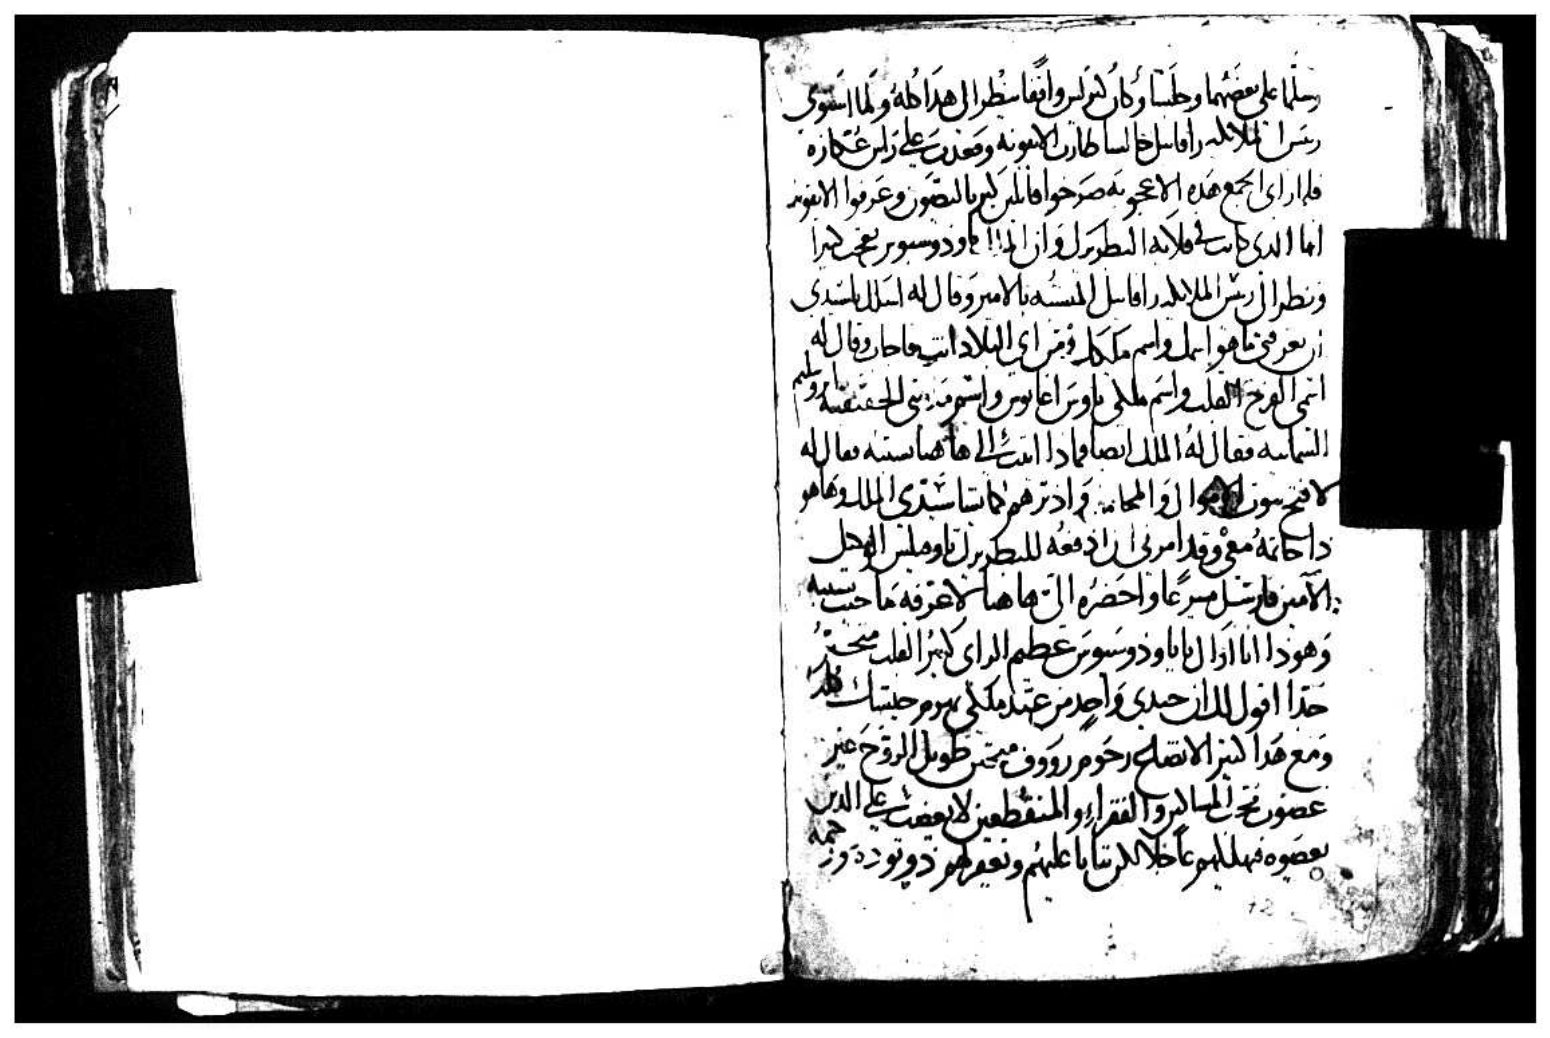 وسلما على بعضهما وجلسا وكان كيرلس واقفا ينظر الى هذا كله ولما استوى
ريس الملايكه رافاييل جالسا طارت الايقونه وقعدت على راس عكازه
فلما راى الجمع هذه الاعجوبه صرخوا قايلين كيرياليصون وعرفوا الايقونه
انها الذي كانت في قلاية البطريرك وان الملك تاوذوسيوس تعجب كثيرا
ونظر الى ريس الملايكه رافاييل المتشبه بالامير وقال له اسلك ياسيدي
ان تعرفني ما هو اسمك واسم ملكك ومن اي البلاد انت فاجاب وقال له
اسمي الفرح القلب واسم ملكي واسم مدينتي الحقيقيه يروشليم
السماييه فقال له الملك ايضا فماذا اتيت الى هاهنا سببه فقال له
لافتح بيوت الاموال والمخازن كما تشا سيدي الملك وهاهو
ذا خاتمه معي وقد امرني ان ادفعه للبطريرك تاوفيلس الوكيل
الامين فارسل مسرعا واحضره الى هاهنا لاعرفه ما جيت بسببه
وهوذا انا اراك يا تاوذوسيوس عظيم الراي كبير القلب
جدا اقول لك ان جندي واحد من عند ملكي يهزم جيشك كله
ومع هذا كثير الاتضاع رحوم رووف متحنن طويل الروح غير
غضوب يحب المساكين والفقراء والمنقطعين لا يغضب على الذين
يعصوه فيهلكهم عاجلا لكن يتانا عليهم ويغفر لهم ذو تودة ورحمه